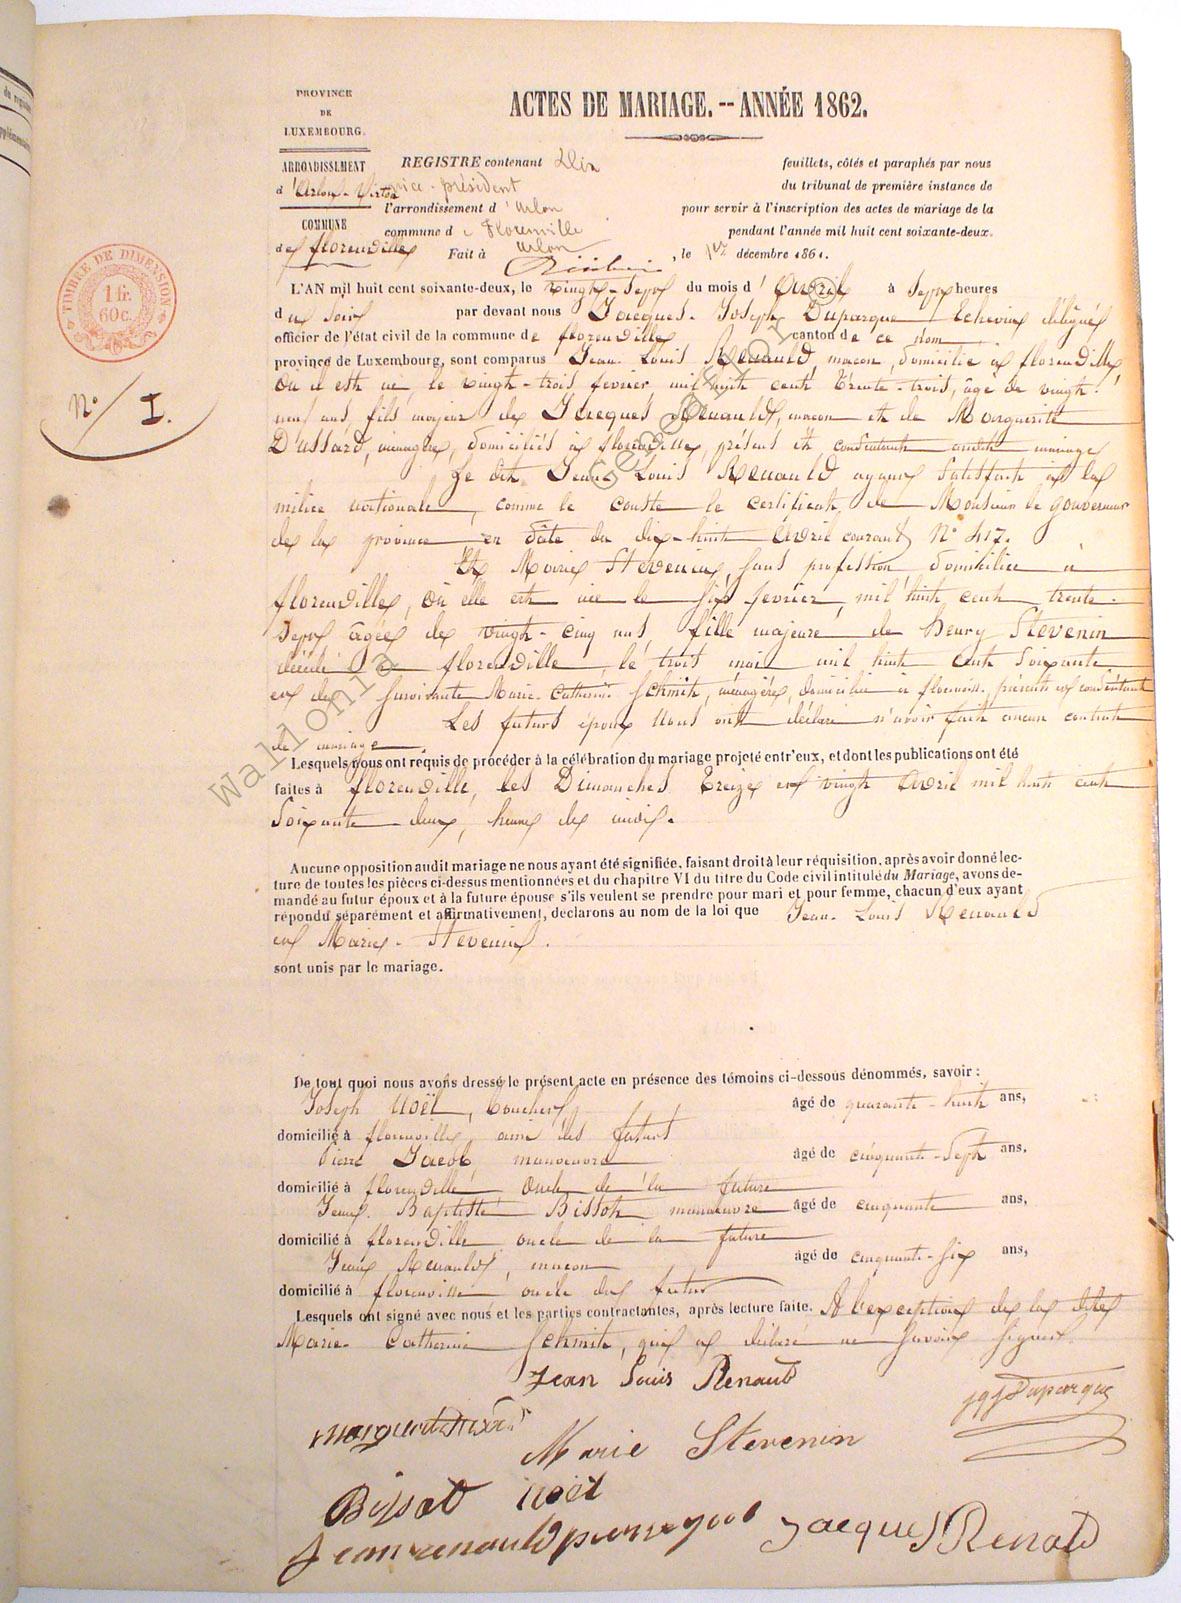 PROVINCE
DE
LUXEMBOURG.
ACTES DE MARIAGE.--ANNÉE 1862.
ARRONDISSEMENT
d'Arlon-Virton
COMMUNE
de florenville
REGISTRE contenant Dix feuillets, côtés et paraphés par nous
vice-président du tribunal de première instance de
l'arrondissement d'Arlon pour servir à l'inscription des actes de mariage de la
commune de Florenville pendant l'année mil huit cent soixante-deux.
Fait à Arlon, le 1er décembre 1861.
TIMBRE DE DIMENSION
1 fr.
60 c.
N° 1.
L'AN mil huit cent soixante-deux, le vingt-sept du mois d'Avril à sept heures
du soir par devant nous Jacques-Joseph Duparque Echevin délégué
officier de l'état civil de la commune de florenville canton de ce nom
province de Luxembourg, sont comparus Jean-Louis Renauld, macon, domicilié à florenville
où il est né, le vingt-trois fevrier mil huit cent trente-trois, âgé de vingt-
neuf ans, fils majeur de Jacques Renauld, macon et de Marguerite
Dussard, ménagère, domiciliés à florenville, présens et consentants audit mariage
Le dit Jean Louis Renauld ayant satisfait à la
milice nationale, comme le conste le certificat de Monsieur le gouverneur
de la province en date du dix-huit Avril courant N° 417.
Et Marie Stevenin, sans profession domiciliée à
florenville, où elle est née le six fevrier mil huit cent trente-
sept âgée de vingt-cinq ans, fille majeure de henry Stevenin
décédé à florenville, le trois mai mil huit cent soixante
et de survivante Marie-Catherine Schmit, ménagère, domiciliée à florenville, présente et consentante
Les futurs époux nous ont déclaré n'avoir fait aucun contrat
de mariage.
Lesquels nous ont requis de procéder à la célébration du mariage projeté entr'eux, et dont les publications ont été
faites à florenville, les Dimanches treize et vingt Avril mil huit cent
soixante-deux, heures de midi.
Aucune opposition audit mariage ne nous ayant été signifiée, faisant droit à leur réquisition, après avoir donné lec-
ture de toutes les pièces ci-dessus mentionnées et du chapitre VI du titre du Code civil intitulé du Mariage, avons de-
mandé au futur époux et à la future épouse s'ils veulent se prendre pour mari et pour femme, chacun d'eux ayant
répondu séparément et affirmativement, déclarons au nom de la loi que Jean-Louis Renauld
et Marie-Stevenin.
sont unis par le mariage.
De tout quoi nous avons dressé le présent acte en présence des témoins ci-dessous dénommés, savoir :
Joseph Noël, boucher âgé de quarante-huit ans,
domicilié à florenville, ami des futurs
Pierre Jacob, manoeuvre âgé de cinquante-sept ans,
domicilié à florenville oncle de la future
Jean-Baptiste Bissot manoeuvre âgé de cinquante ans,
domicilié à florenville oncle de la future
Jean Renauld, macon âgé de cinquante-six ans,
domicilié à florenville oncle du futur
Lesquels ont signé avec nous et les parties contractantes, après lecture faite. A l'exception de la dite
Marie-Catherine Schmit, qui a déclaré ne savoir signer.
Jean Louis Renauld
Marie Stevenin
Bissot noël
jean renauld
Jacques Renauld
wallonia Geneanor ©